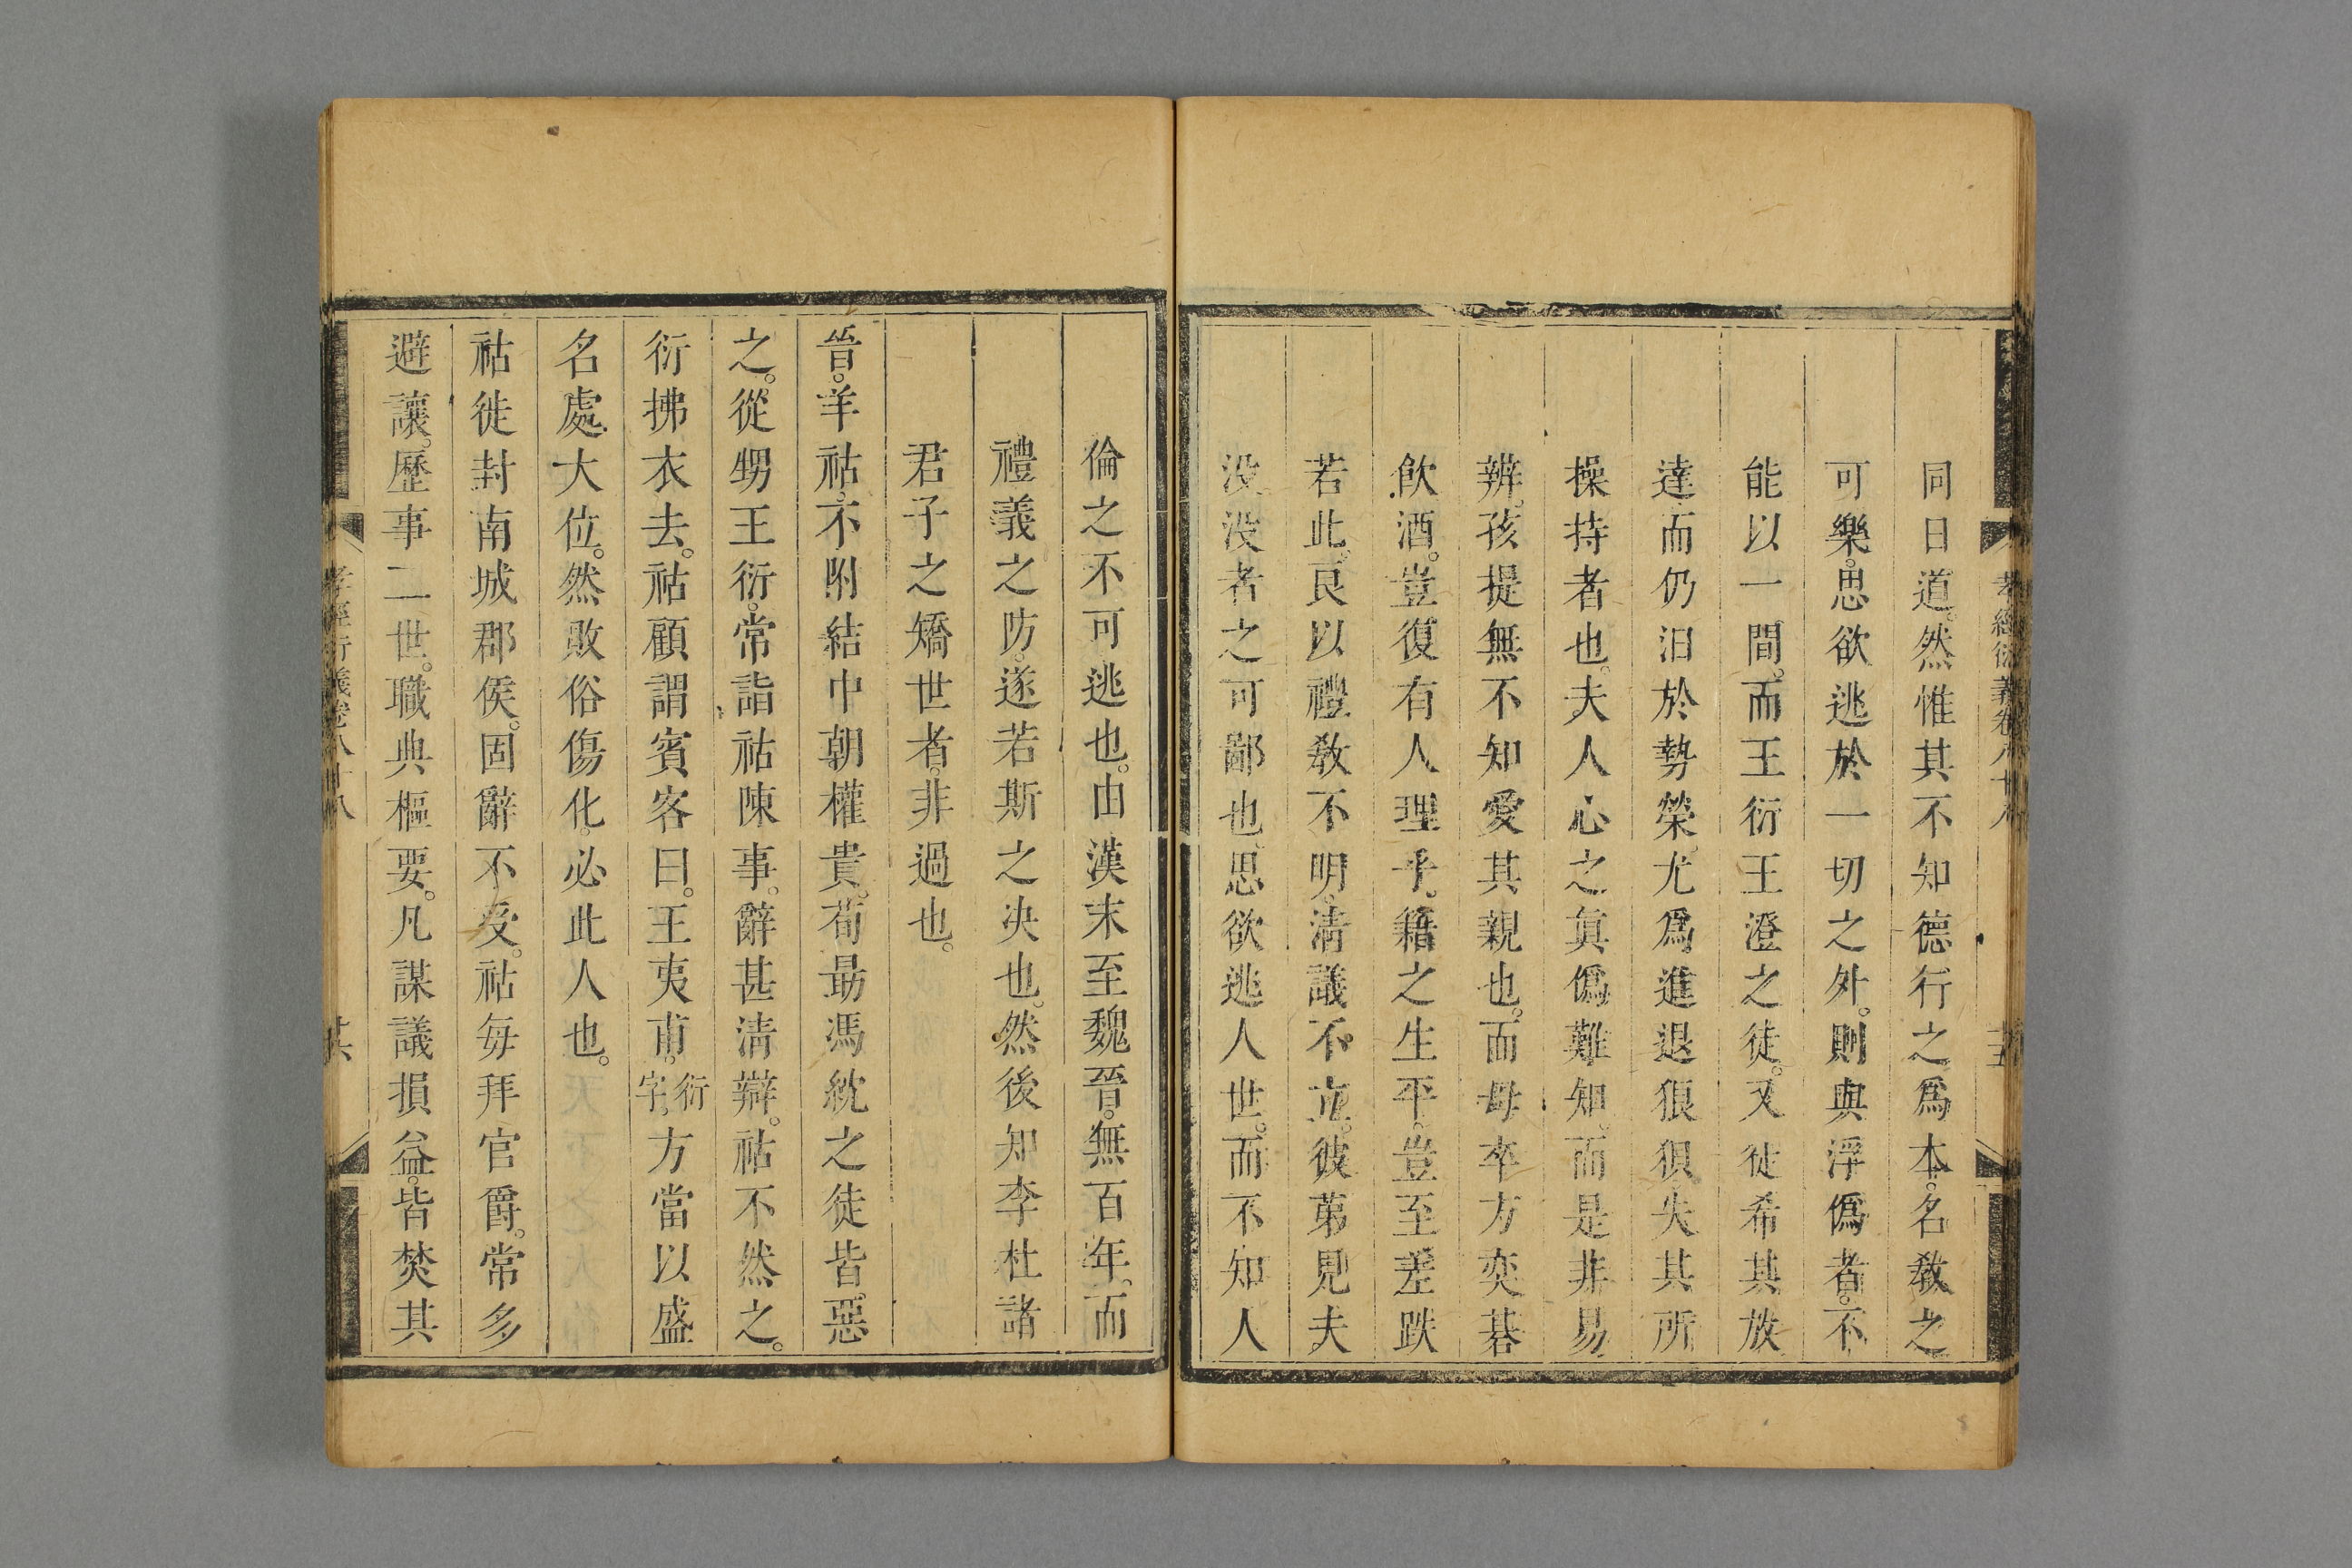 孝經衍義卷八十八
同日道。然惟其不知德行之爲本。名敎之
可樂。思欲逃於一切之外。則與浮僞者。不
能以一間。而王衍王澄之徒。又徒希其放
達而仍汨於勢榮。尤爲進退狼狽失其所
操持者也。夫人心之眞僞難知。而是非易
辨。孩提無不知愛其親也。而母卒方奕碁
飮酒。豈復有人理乎。籍之生平。豈至差跌
若此。良以禮敎不明。淸議不立。彼第見夫
没没者之可鄙也。思欲逃人世。而不知人
倫之不可逃也。由漢末至魏晉。無百年。而
禮義之防。遂若斯之決也。然後知李杜諸
君子之矯世者。非過也。
晉。羊祜。不附結中朝權貴。荀勗馮紞之徒皆。惡
之。從甥王衍。常詣祜陳事。辭甚淸辯。祜不然之。
衍拂衣去。祜顧謂賓客曰。王夷甫。衍字。方當以盛
名處大位。然敗俗傷化。必此人也。
祜徙封南城郡侯。固辭不受。祜每拜官爵。常多
避讓。歷事二世。職典樞要。凡謀議損益。皆焚其
孝經衍義卷八十八